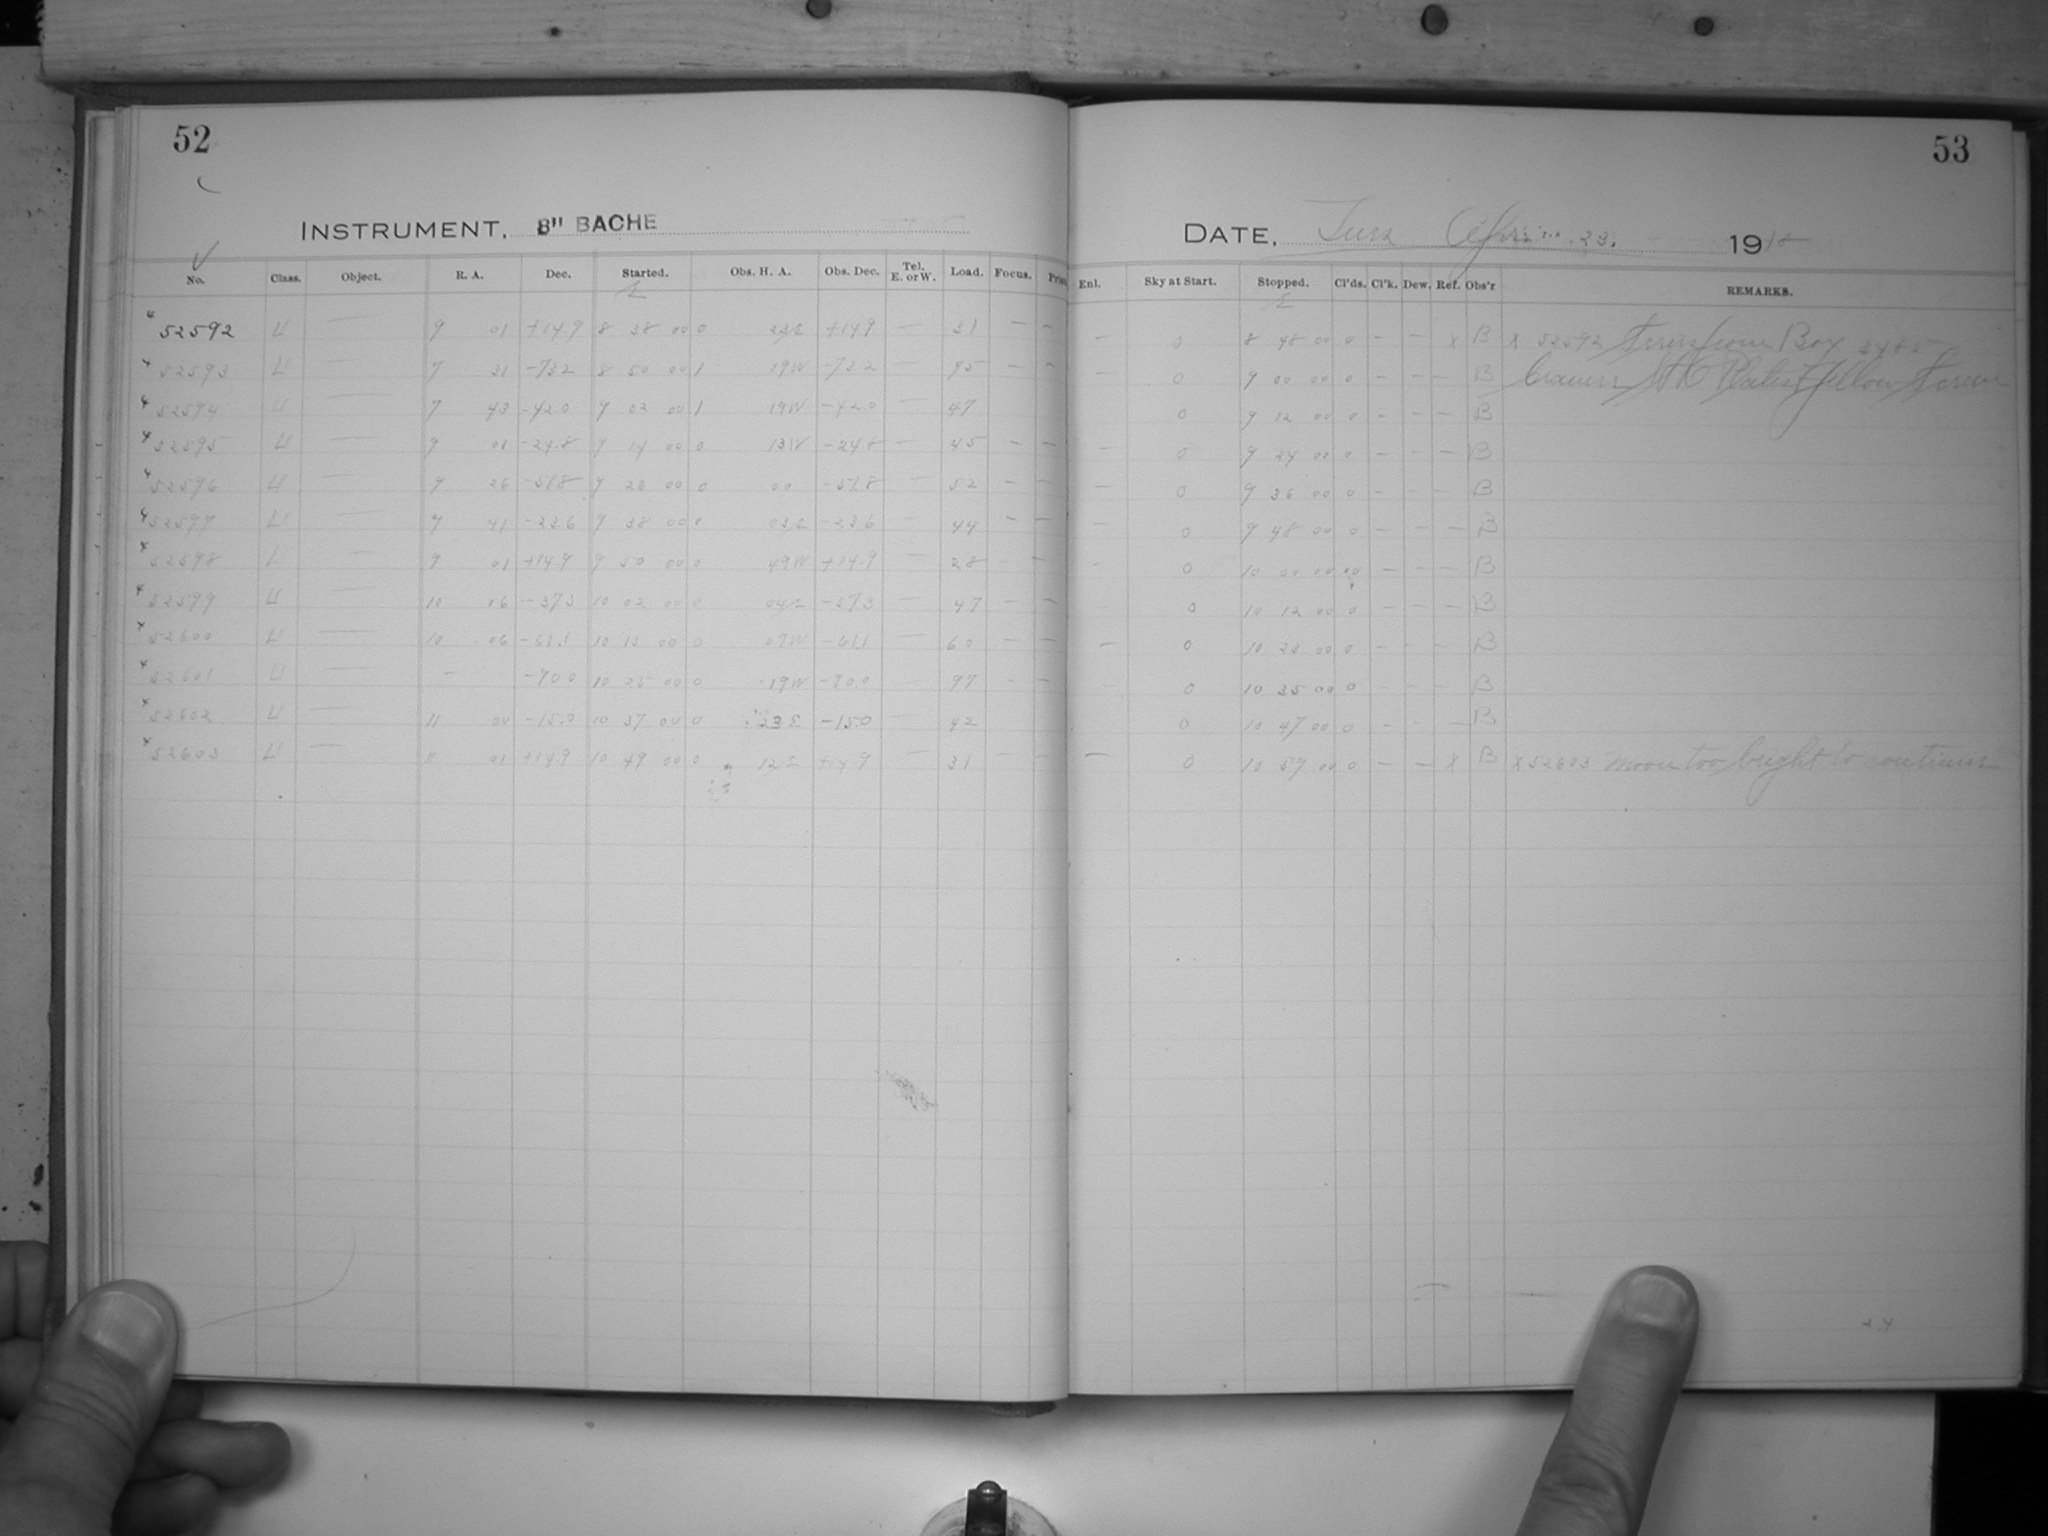 52
53
INSTRUMENT, 8" BACHE
DATE, Tues April 23, 1918
No. Class. Object. R. A. Dec. Started. Obs. H. A. Obs. Dec. Tel. E. or W. Load. Focus. Enl. Sky at Start. Stopped. Cl'ds. Cl'k. Dew. Ref. Obs'r REMARKS.
52592 U — 9 01 +14.9 8 38 00 0 +14.9 — 31 — — — 0 8 48 00 0 — — x B x 52592 from Box
52593 U — 7 31 -73.2 8 50 00 1 19W -73.2 — 95 — — — 0 9 00 00 0 — — — B
52594 U — 7 43 -42.0 9 02 00 1 19W -42.0 — 47 0 9 12 00 0 — — — B
52595 U — 9 01 -24.8 9 14 00 0 13W -24.8 — 45 — — — 0 9 24 00 0 — — — B
52596 U — 9 26 -51.8 9 26 00 0 00 -51.8 — 52 — — — 0 9 36 00 0 — — — B
52597 U — 9 41 -23.6 9 38 00 0 03E -23.6 — 44 — — — 0 9 48 00 0 — — — B
52598 U — 9 01 +14.9 9 50 00 0 49W +14.9 — 28 — — — 0 10 00 00 — — — B
52599 U — 10 06 -37.3 10 02 00 0 04E -37.3 — 47 — — 0 10 12 00 0 — — — B
52600 U — 10 06 -61.1 10 13 00 0 09W -61.1 — 60 — — — 0 10 23 00 0 — — — B
52601 U — — -70.0 10 25 00 0 19W -70.0 — 97 — — 0 10 35 00 0 — — — B
52602 U — 11 00 -15.0 10 37 00 0 23E -15.0 — 42 0 10 47 00 0 — — — B
52603 U — 11 01 +14.9 10 49 00 0 12E +14.9 — 31 — — — 0 10 59 00 0 — — x B x 52603 moon too bright to continue